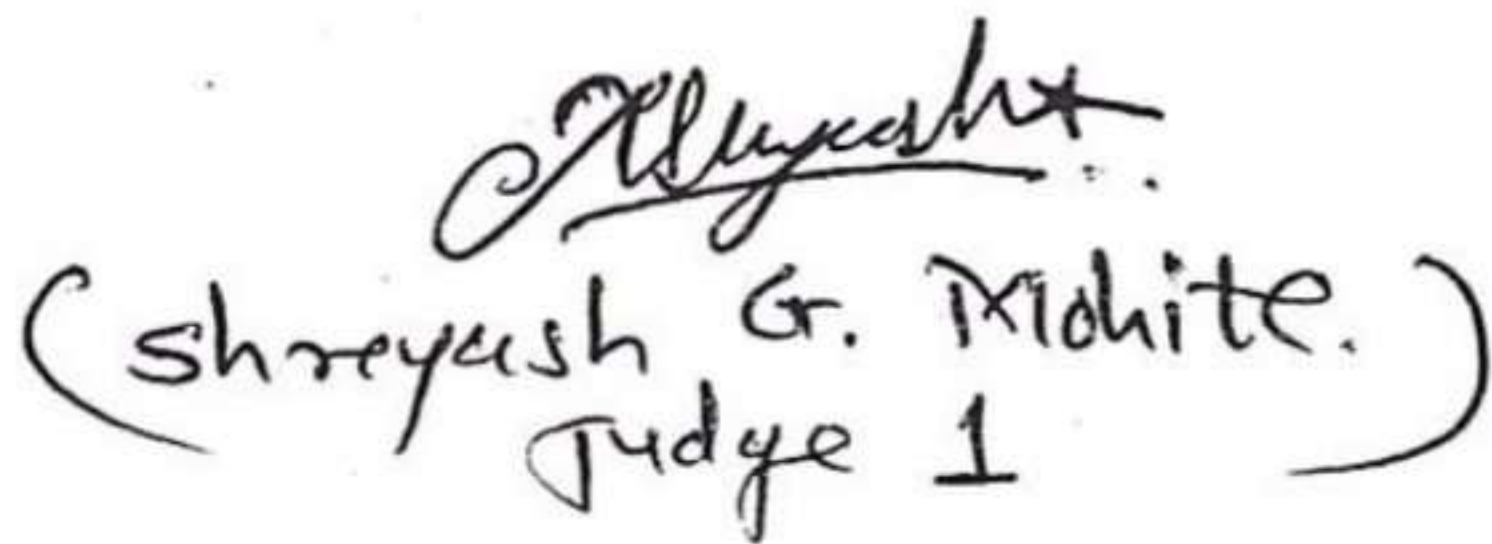 (Shreyash G. Mohite.)
Judge 1